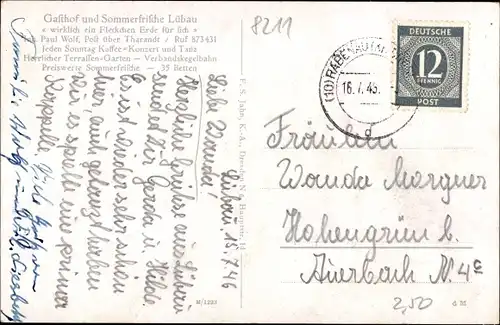 Gasthof und Sommerfrische Lübau
« wirklich ein Fleckchen Erde für sich »
Paul Wolf, Post über Tharandt / Ruf 873431
Jeden Sonntag Kaffee-Konzert und Tanz
Herrlicher Terrassen-Garten — Verbandskegelbahn
Preiswerte Sommerfrische — 35 Betten
8211
(10) RABENAU
16.7.46.
d
DEUTSCHE
12
PFENNIG
POST
Lübau, 15.7.46
Liebe Wanda!
Herzliche Grüße aus Lübau
sendet Dir Gerda u. Hilde.
Es ist wieder sehr schön
hier, auch getanzt haben
wir, es spielte eine prima
Kapelle.
F. S. Jahn, K.-A., Dresden N
H/1223
Fräulein
Wanda Margner
Hohengrün b.
Auerbach N. 4c
2,50